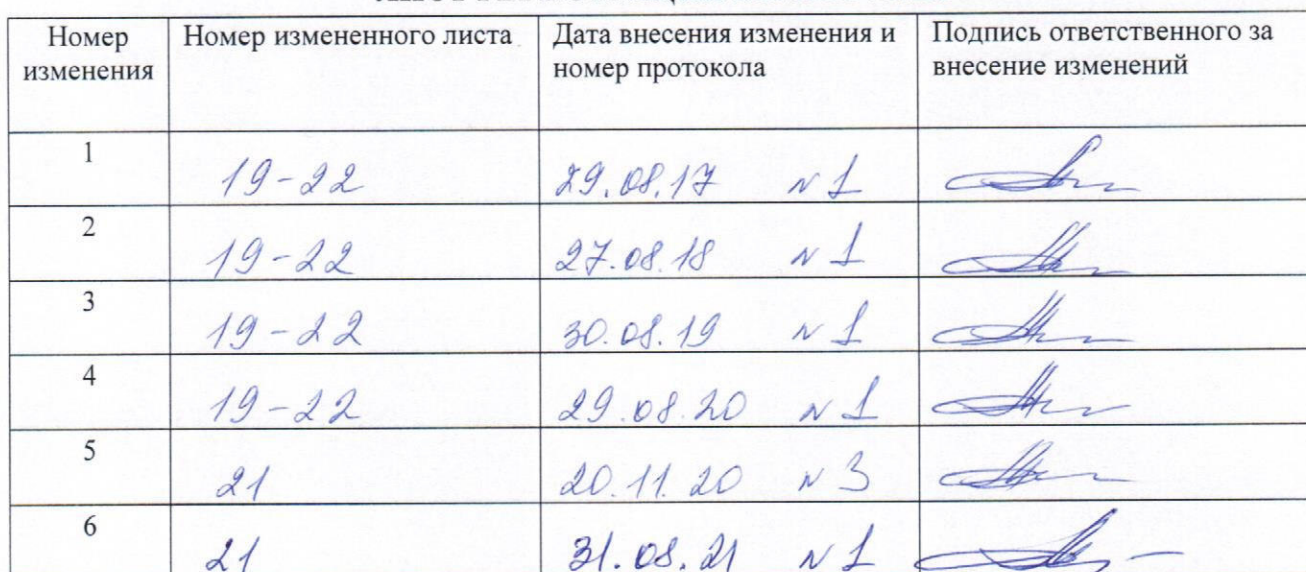 Номер изменения Номер измененного листа Дата внесения изменения и номер протокола Подпись ответственного за внесение изменений
1 19-22 29.08.17 N 1
2 19-22 27.08.18 N 1
3 19-22 30.08.19 N 1
4 19-22 29.08.20 N 1
5 21 20.11.20 N 3
6 21 31.08.21 N 1